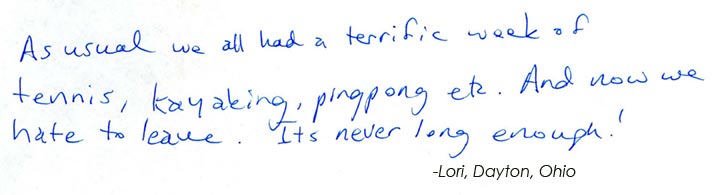 As usual we all had a terrific week of
tennis, kayaking, pingpong etc. And now we
hate to leave. Its never long enough!
-Lori, Dayton, Ohio